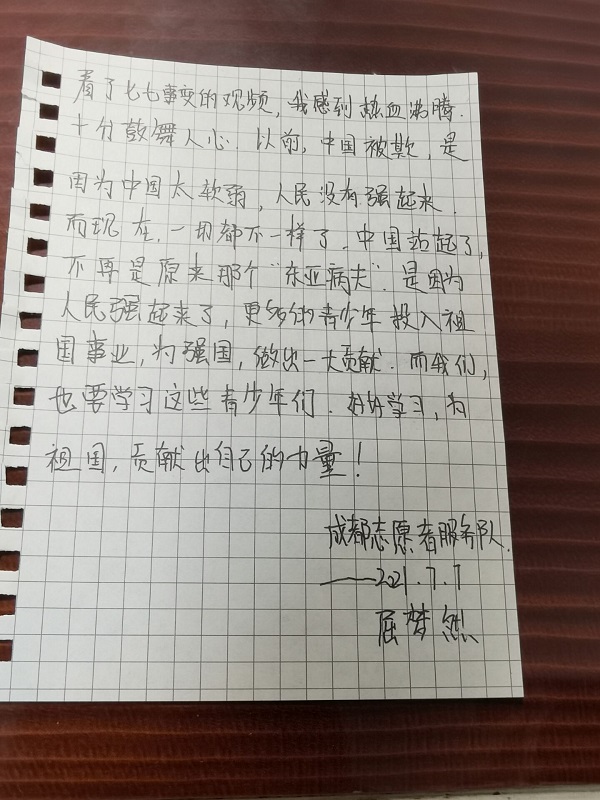 看了七七事变的观频，我感到热血沸腾.
十分鼓舞人心.以前，中国被欺，是
因为中国太软弱，人民没有强起来.
而现在.一切都不一样了.中国站起了，
不再是原来那个"东亚病夫".是因为
人民强起来了，更多的青少年投入祖
国事业，为强国，做出一大贡献.而我们，
也要学习这些青少年们.好好学习，为
祖国，贡献出自己的力量！
成都志愿者服务队.
——2021.7.7
屈梦然